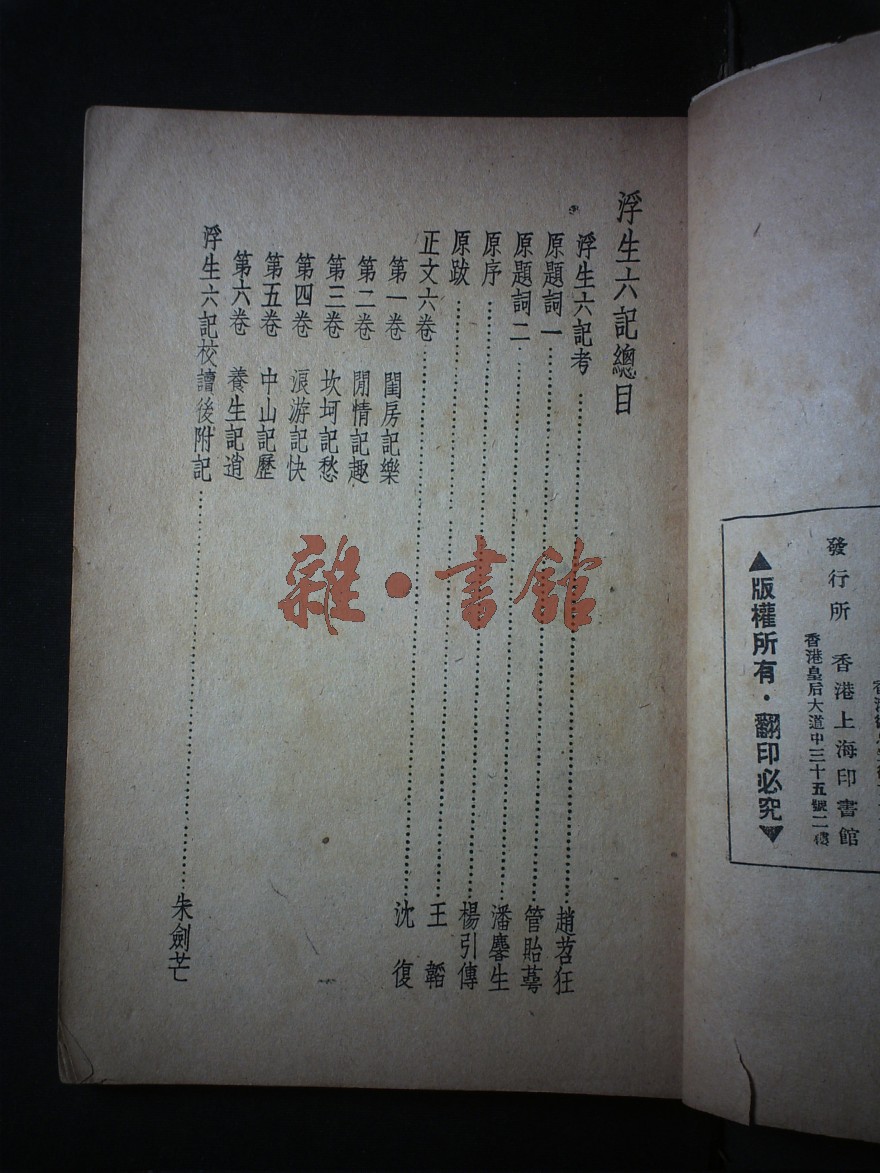 發行所　香港上海印書館
香港皇后大道中三十五號二樓
▲版權所有・翻印必究▼
浮生六記總目
浮生六記考……趙苕狂
原題詞一……管貽葄
原題詞二……潘麐生
原序……楊引傳
原跋……王　韜
正文六卷……沈　復
第一卷　閨房記樂
第二卷　閒情記趣
第三卷　坎坷記愁
第四卷　浪游記快
第五卷　中山記歷
第六卷　養生記逍
浮生六記校讀後附記……朱劍芒
雜・書館